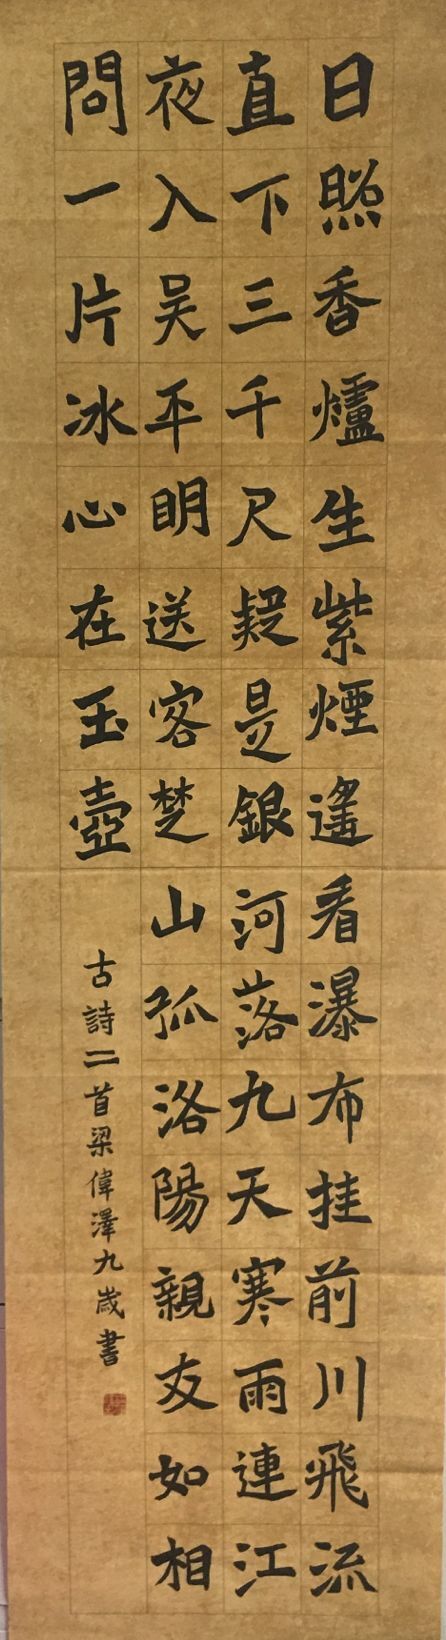 日照香爐生紫煙遙看瀑布挂前川飛流
直下三千尺疑是銀河落九天寒雨連江
夜入吴平明送客楚山孤洛陽親友如相
問一片冰心在玉壺
古詩二首梁偉澤九歲書